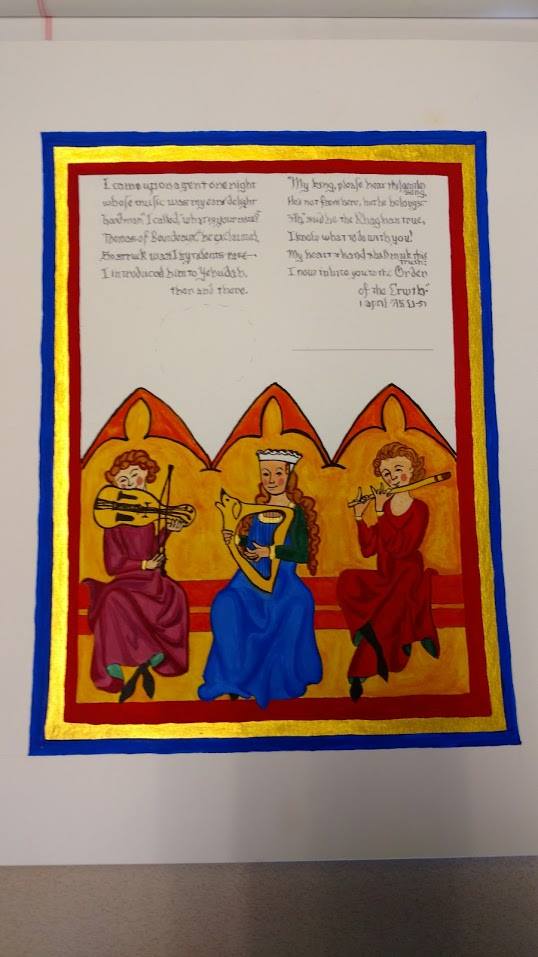 I came upon a gent one night
whose music was my ears' delight
"Good man" I called, "what is your name?"
"Thomas of Bourdeaux" he exclaimed,
So struck was I by talents rare—
I introduced him to Yehudah,
then and there.
"My king, please hear this gentles
song,
He's not from here, but he belongs."
"Ah," said he the Khaghan true,
I know what to do with you!
My heart & hand shall mark this
truth:
I now induce you to the Order
of the Crwth"
1 April AS